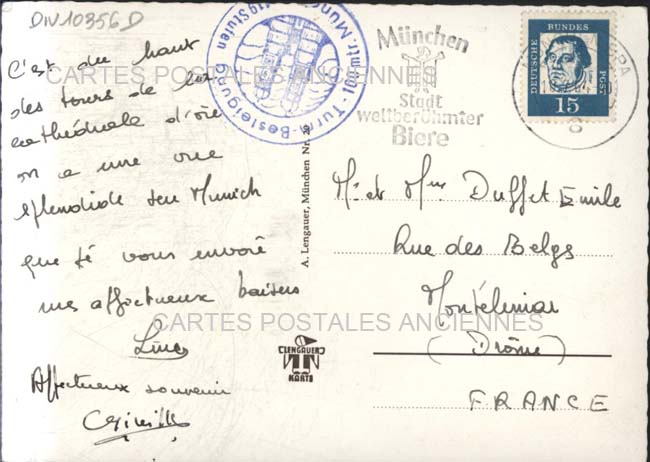 DIV10356D
C'est du haut
des tours de la
cathédrale d'où
on a une vue
splendide sur Munich
que je vous envoie
mes affectueux baisers
Affectueux souvenir
CARTES POSTALES ANCIENNES
CARTES POSTALES ANCIENNES
Turm-Besteigung
Stufen
München
Stadt
weltberühmter
Biere
DEUTSCHE
BUNDES
POST
15
A. Lengauer, München Nr.
LENGAUER
KARTE
Mr et Mme Duffet Emile
Rue des Belges
Montélimar
(Drôme)
FRANCE